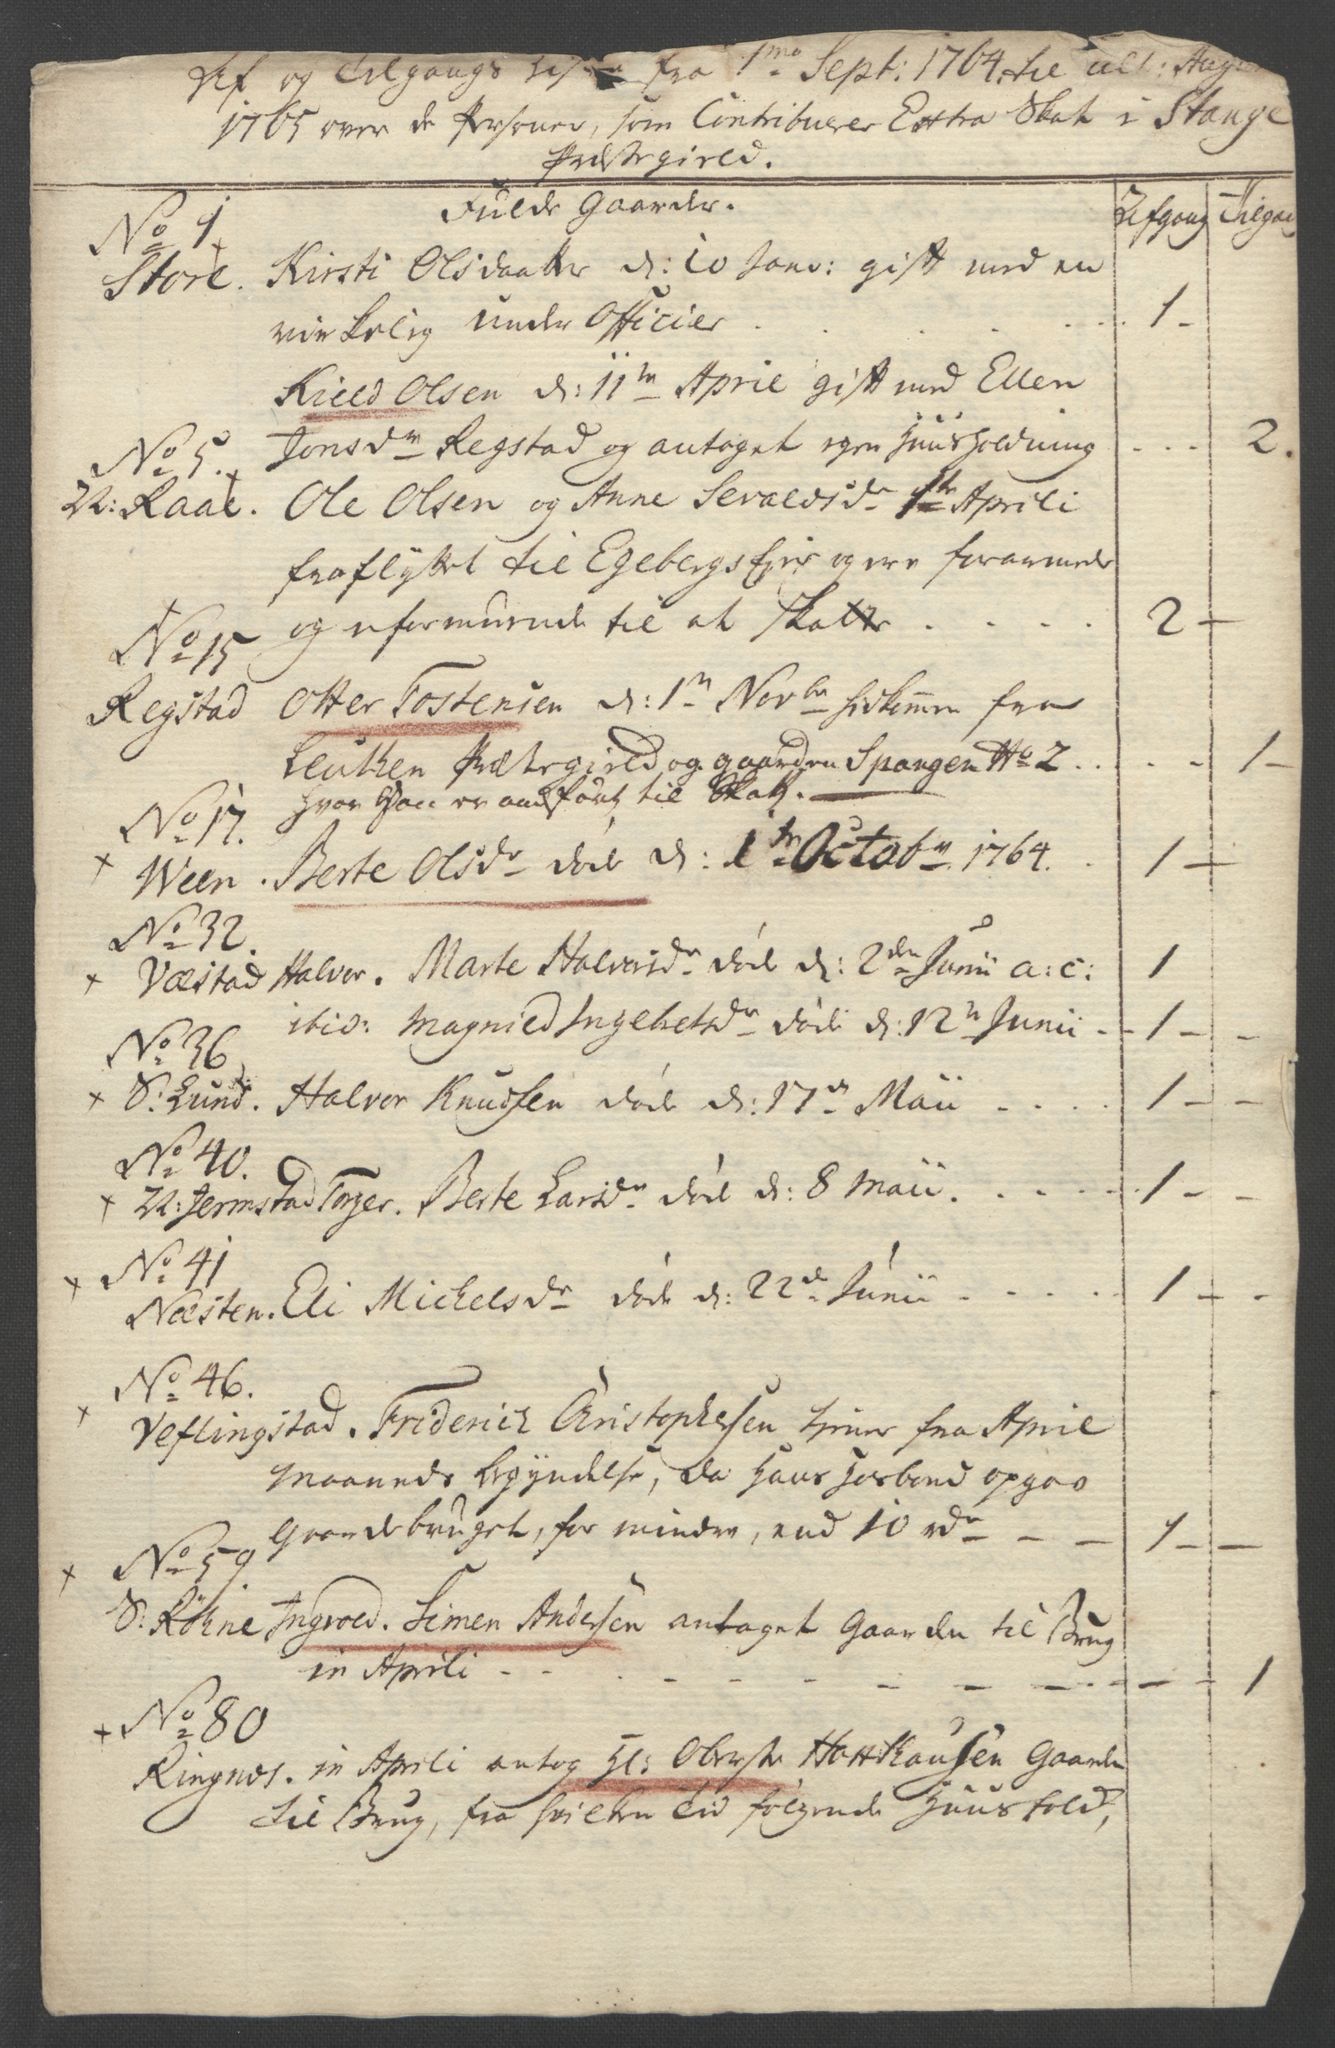 Af og Tilgangs Liste fra 1mo Sept: 1764 til ult: Augu
1765 over de Personer, som Contribuerer Extra Skat i Stange
Præstegield.
Fulde Gaarder.
Afgang Tilgang
No 1
Store. Kirsti Olsdaatter d: 10 Janv: gift med en
virkelig Under Officier . . . . 1 -
Kield Olsen d: 11te April gift med Ellen
Jonsdr Regstad og antaget egen Huusholdning . . . 2.
No 5.
N: Raal. Ole Olsen og Anne Sevaldsdr 1te Aprili
fraflyttet til Egebergs Eyer og ere forarmede
og uformuende til at Skatte . . . . 2 -
No 15
Regstad Otter Tostensen d: 1te Novbr hidkommen fra
Leuthen Præstegield og gaarden Spangen No 2 . . . . 1 -
hvor Han er andført til Skatt.
No 17.
Ween. Berte Olsdr døde d: 1te Octobr 1764. . 1 -
No 32.
Væstad Halvor. Marte Halvorsdr døde d: 2den Junii a: c: 1
ibid: Magnild Ingebretsdr døde d: 12te Junii - - 1 - -
No 36
S: Lund. Halvor Knudsen døde d: 17de Maii - . . . 1 - -
No 40.
N: Jermstad Torger. Berte Larsdr død d: 8 Maii. . . . . 1 - -
No 41
Næsten. Eli Michelsdr døde d: 22de Junii - . . . . 1 - -
No 46.
Veflingstad. Friderich Christophersen tiener fra April
Maaneds Begyndelse, da Hans Hosbond opgav
Gaardebruget, for mindre, end 10 rdr - - - 1 - -
No 59
S: Røhne Ingvold. Simen Andersen antaget Gaarden til Brug
in Aprili - - . - - - - - - . - - 1
No 80
Ringnes. in Aprili antog Hr: Oberste Hatthausen Gaarden
til Brug, fra hvilken Tid følgende Huusfold,